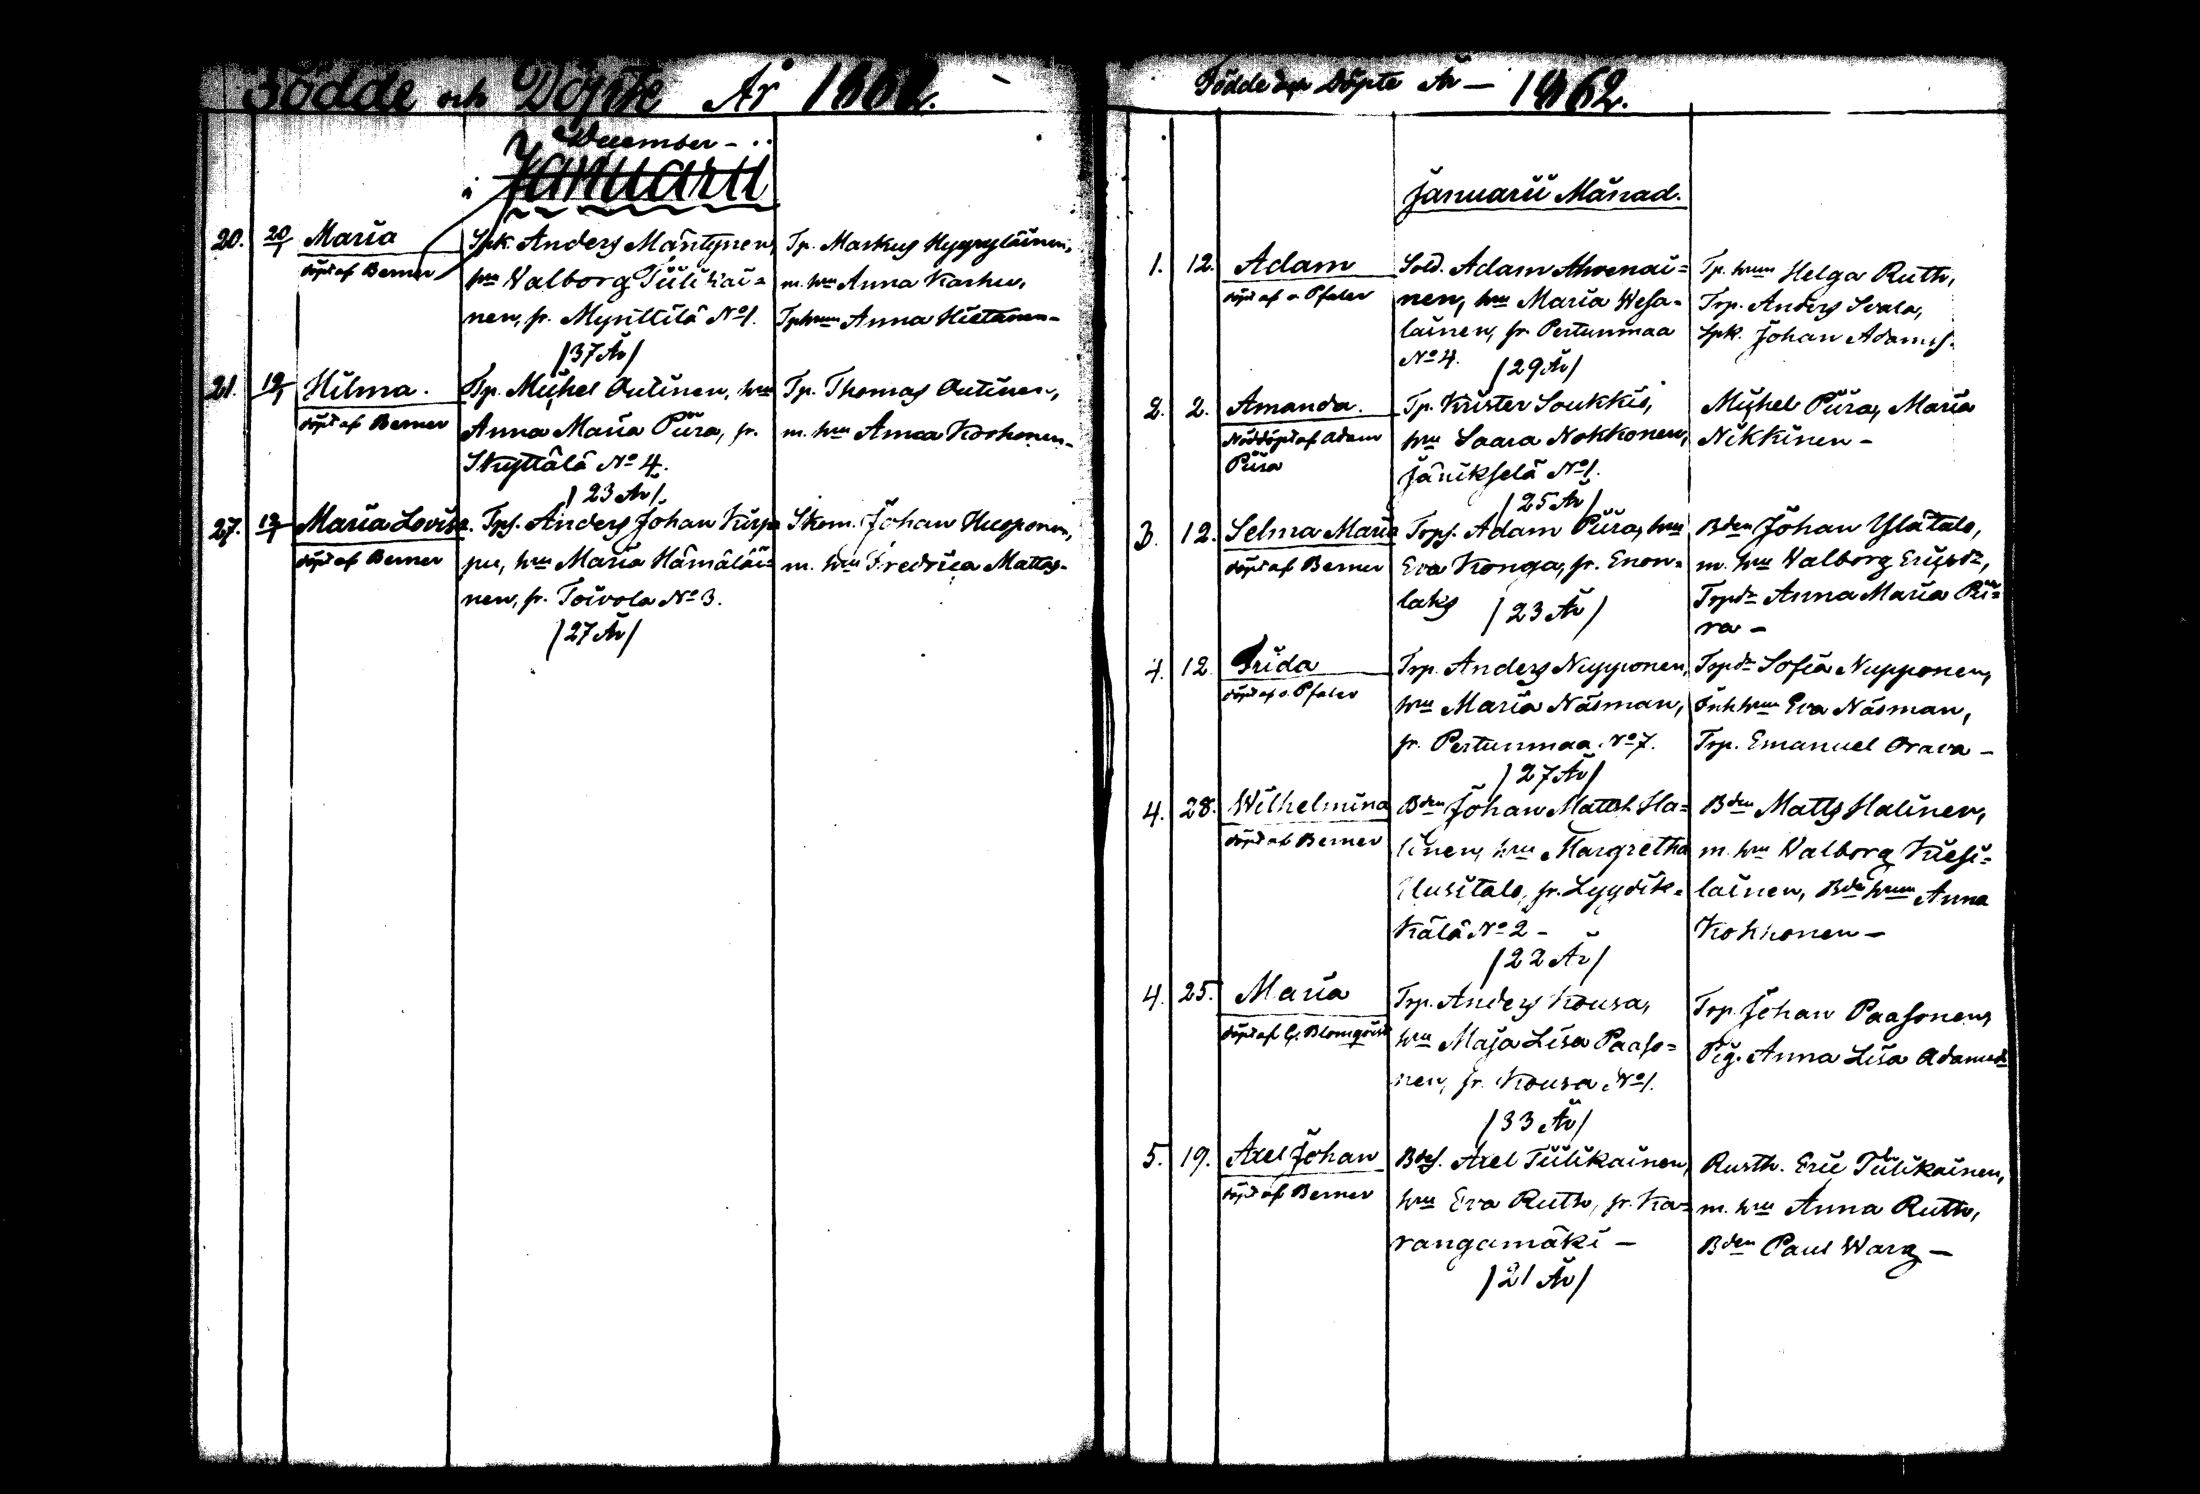 Födde och Döpte År 1862.
December -
i Januarii
20. 20/1 Maria
döpt af Berner
Spk. Anders Mäntynen,
hu Walborg Tiilikai=
nen, fr. Mynttilä No 1.
/37 År/
Tp. Markus Hyyryläinen,
m. hu Anna Karhu,
Tphum Anna Hietanen -
21. 12/1 Hilma.
döpt af Berner
Tp. Michel Outinen, hu
Anna Maria Piira, fr.
Skyttälä No 4.
/23 År/
Tp. Thomas Outinen,
m. hu Anna Korhonen -
27. 12/1 Maria Lovisa.
döpt af Berner
Tps. Anders Johan Kirp
pu, hu Maria Hämäläi=
nen, fr. Toivola No 3.
/27 År/
Skom. Johan Huoponen,
m. hu Fredrica Matts -
Födde och Döpte År - 1862.
Januarii Månad.
1. 12. Adam
döpt af v. Pfaler
Sold. Adam Ahvenai=
nen, hu Maria Wesa=
lainen, fr. Pertunmaa
No 4. /29 År/
Tp. hum Helga Ruth,
Trp. Anders Svala,
Spk. Johan Adamss.
2. 2. Amanda.
Nöddöpt af Adam
Piira
Tp. Krister Soukkio,
hu Saara Nokkonen,
Jänikselä No 1.
/25 År/
Michel Piira, Maria
Nikkinen -
3. 12. Selma Maria
döpt af Berner
Trps. Adam Piira, hu
Eva Konga, fr. Enon=
laks /23 År/
Bden Johan Ylätalo,
m. hu Walborg Ericsdr,
Trpdr Anna Maria Pii=
ra -
4. 12 Frida
döpt af v. Pfaler
Trp. Anders Nupponen,
hu Maria Näsman,
fr. Pertunmaa No 7.
/27 År/
Trpdr Sofia Nupponen,
Inhhum Eva Näsman,
Trp. Emanuel Orava -
4. 28. Wilhelmina
döpt af Berner
Bden Johan Matth. Ha=
linen, hu Margretha
Uusitalo, fr. Lyydik=
kälä No 2 -
/22 År/
Bden Matts Halinen,
m. hu Walborg Kiesi=
läinen, Bdehum Anna
Kokkonen -
4. 25. Maria
döpt af G. Blomqvist
Trp. Anders Kousa,
hu Maja Lisa Paaso=
nen, fr. Kousa No 1.
/33 År/
Trp. Johan Paasonen,
Pig. Anna Lisa Adamsdr
5. 19. Axel Johan
döpt af Berner
Bdes. Axel Tiilikainen,
hu Eva Ruth, fr. Ka=
rangamäki -
/21 År/
Rusth. Eric Tiilikainen,
m. hu Anna Ruth,
Bden Paul Warg -